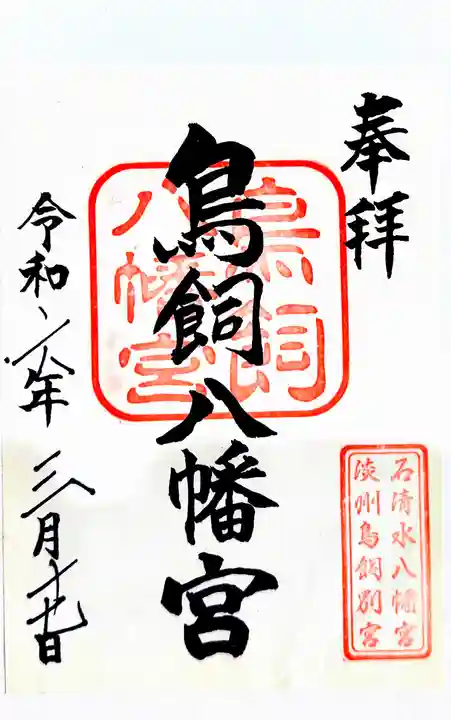 奉拝
鳥飼八幡宮
鳥飼
八幡宮
石清水八幡宮
淡州鳥飼別宮
令和年三月十日